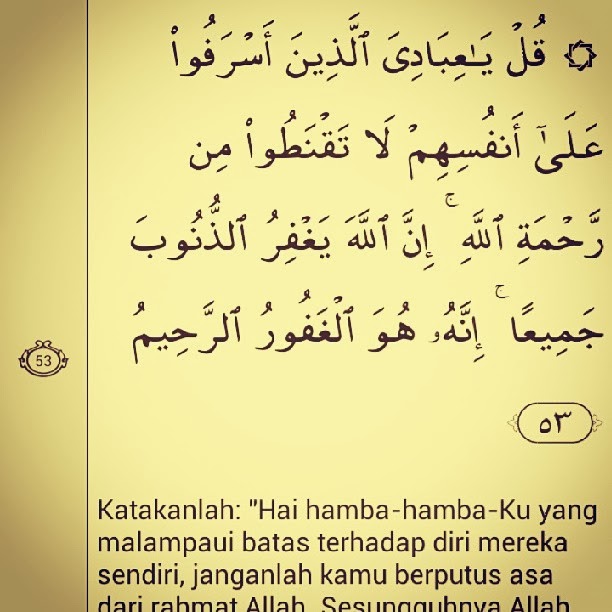 ۞ قُلْ يَـٰعِبَادِىَ ٱلَّذِينَ أَسْرَفُوا۟
عَلَىٰٓ أَنفُسِهِمْ لَا تَقْنَطُوا۟ مِن
رَّحْمَةِ ٱللَّهِ ۚ إِنَّ ٱللَّهَ يَغْفِرُ ٱلذُّنُوبَ
جَمِيعًا ۚ إِنَّهُۥ هُوَ ٱلْغَفُورُ ٱلرَّحِيمُ
53
٥٣
Katakanlah: "Hai hamba-hamba-Ku yang
malampaui batas terhadap diri mereka
sendiri, janganlah kamu berputus asa
dari rahmat Allah. Sesungguhnya Allah